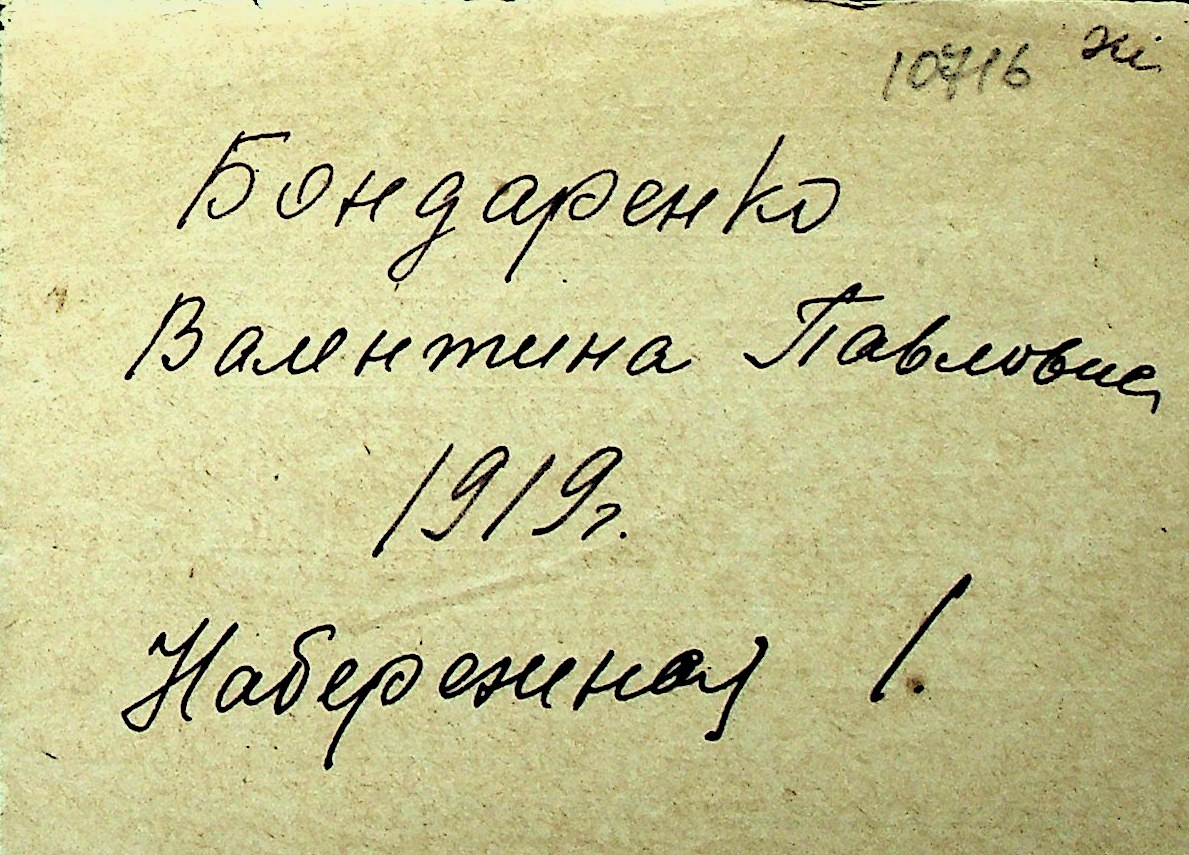 10716 жі
Бондаренко
Валентина Павловна
1919г.
Набережная 1.